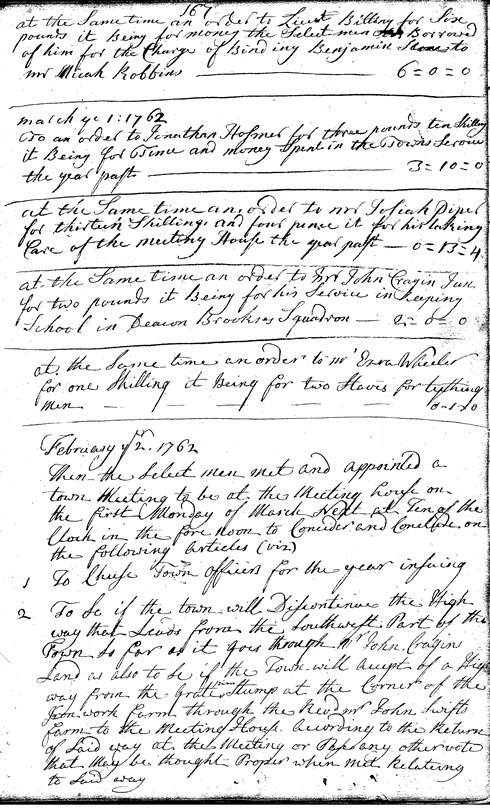 167
at the Same time an order to Lieut Billing for Six
pounds it Being for money the Select men Borrowed
of him for the Charge of Binding Benjamin Stone to
mr Micah Robbins 6=0=0
march ye 1: 1762
to an order to Jonathan Hosmer for three pounds ten Shilling
it Being for Time and money Spent in the Towns Service
the year past 3=10=0
at the Same time an order to mr Josiah Piper
for thirteen Shillings and four pence it for his taking
Care of the meeting House the year past — 0=13=4
at the Same time an order to mr John Cragin Jun
for two pounds it Being for his Service in Keeping
School in Deacon Brookses Squadron — 2=0=0
at the Same time an order to mr Ezra Wheeler
for one Shilling it Being for two Staves for tything
men — 0-1-0
February ye 2. 1762
Then the Select men met and appointed a
town Meeting to be at the Meeting house on
the first Monday of March Next at Ten of the
Clock in the fore noon to Concider and Conclude on
the following Articles (viz)
1 To Chuse Town officers for the year insuing
2 To Se if the town will Discontinue the High
way that Leads from the Southwest Part of the
Town So far as it goes through Mr John Cragins
Land as also to Se if the Town will Acept of a High
way from the grate pine Stump at the Corner of the
Iron work farm through the Revd mr John Swifts
farm to the Meeting House According to the Return
of Said way at the Meeting or Pass any other vote
that May be thought Proper when met Relating
to Said way